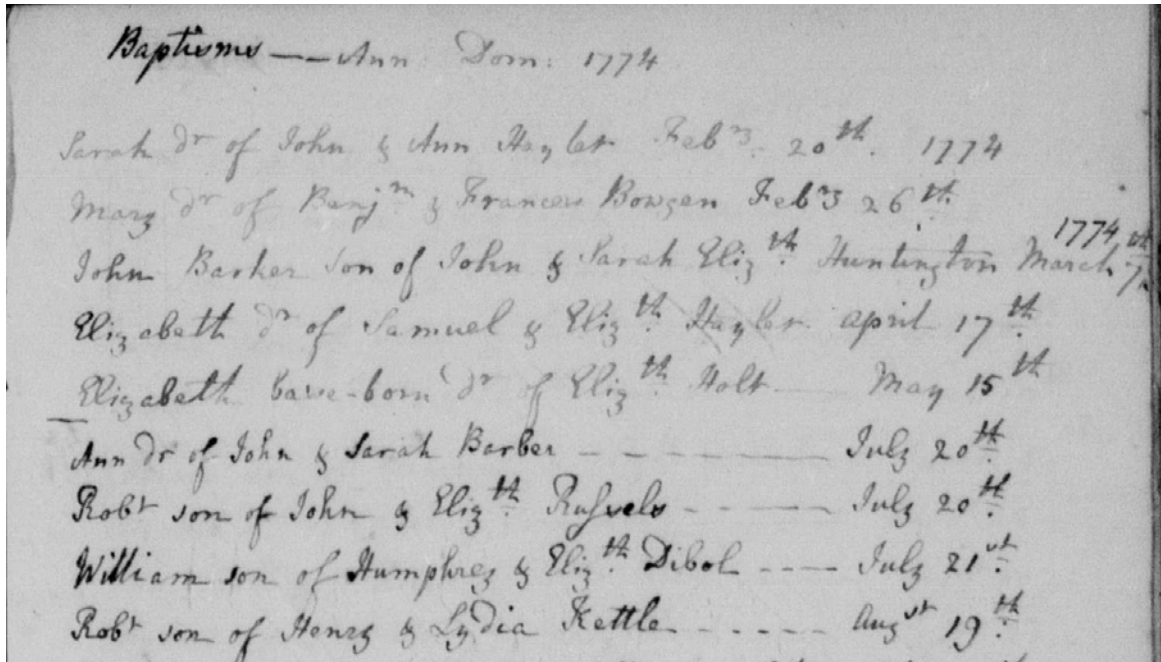 Baptisms — Ann: Dom: 1774
Sarah dr of John & Ann Hayler Feby. 20th. 1774
Mary dr of Benjm & Frances Bowgen Feby 26th.
1774
John Barker son of John & Sarah Elizth. Huntington March 7th
Elizabeth dr of Samuel & Elizth. Hayler april 17th.
Elizabeth base-born dr of Elizth. Holt — May 15th
Ann dr of John & Sarah Barber - - - - — July 20th.
Robt son of John & Elizth. Rufsels - - - — July 20th.
William son of Humphrey & Elizth. Dibol - - - - July 21st.
Robt son of Henry & Lydia Kettle - - - - - Augst 19th.